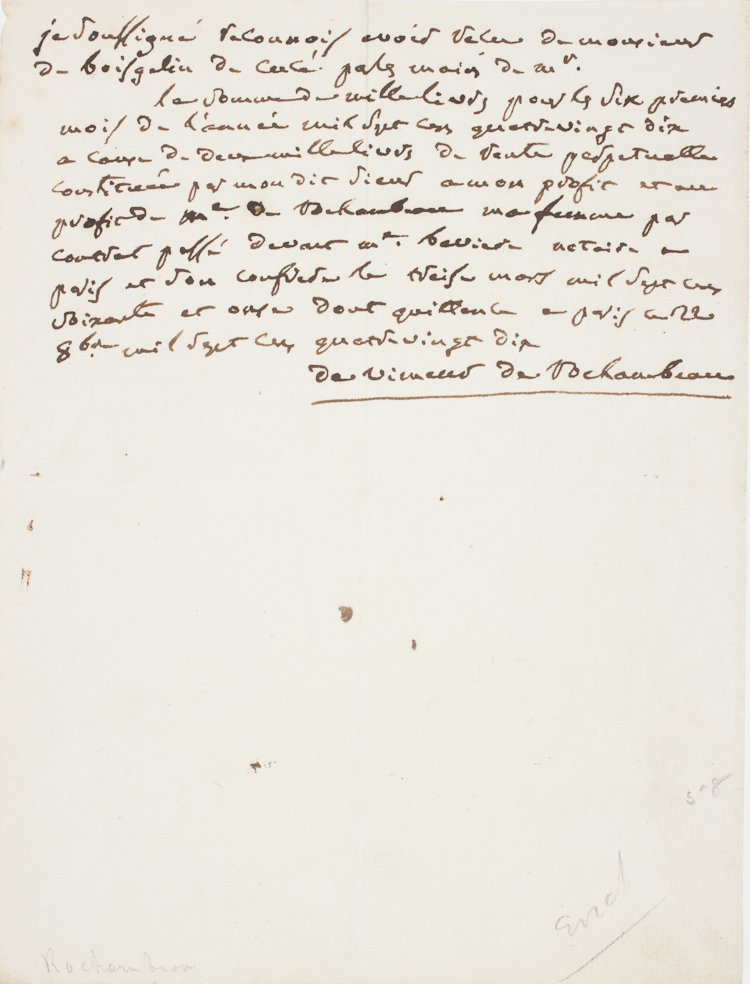 je soussigné reconnois avoir recu de monsieur
de boisgelin de cucé par les mains de mr.
la somme de mille livres pour les six premiers
mois de l'année mil sept cens quatrevingt dix
a cause de deux mille livres de rente perpetuelle
constituée par mon dit sieur a mon profit et au
profit de me. de Rochambeau ma femme par
contrat passé devant me. baviere notaire a
paris et son confrere le treise mars mil sept cens
soixante et onse dont quittence a paris ce 22
8bre mil sept cens quatrevingt dix
de vimeur de Rochambeau
5-8
End
Rochambeau